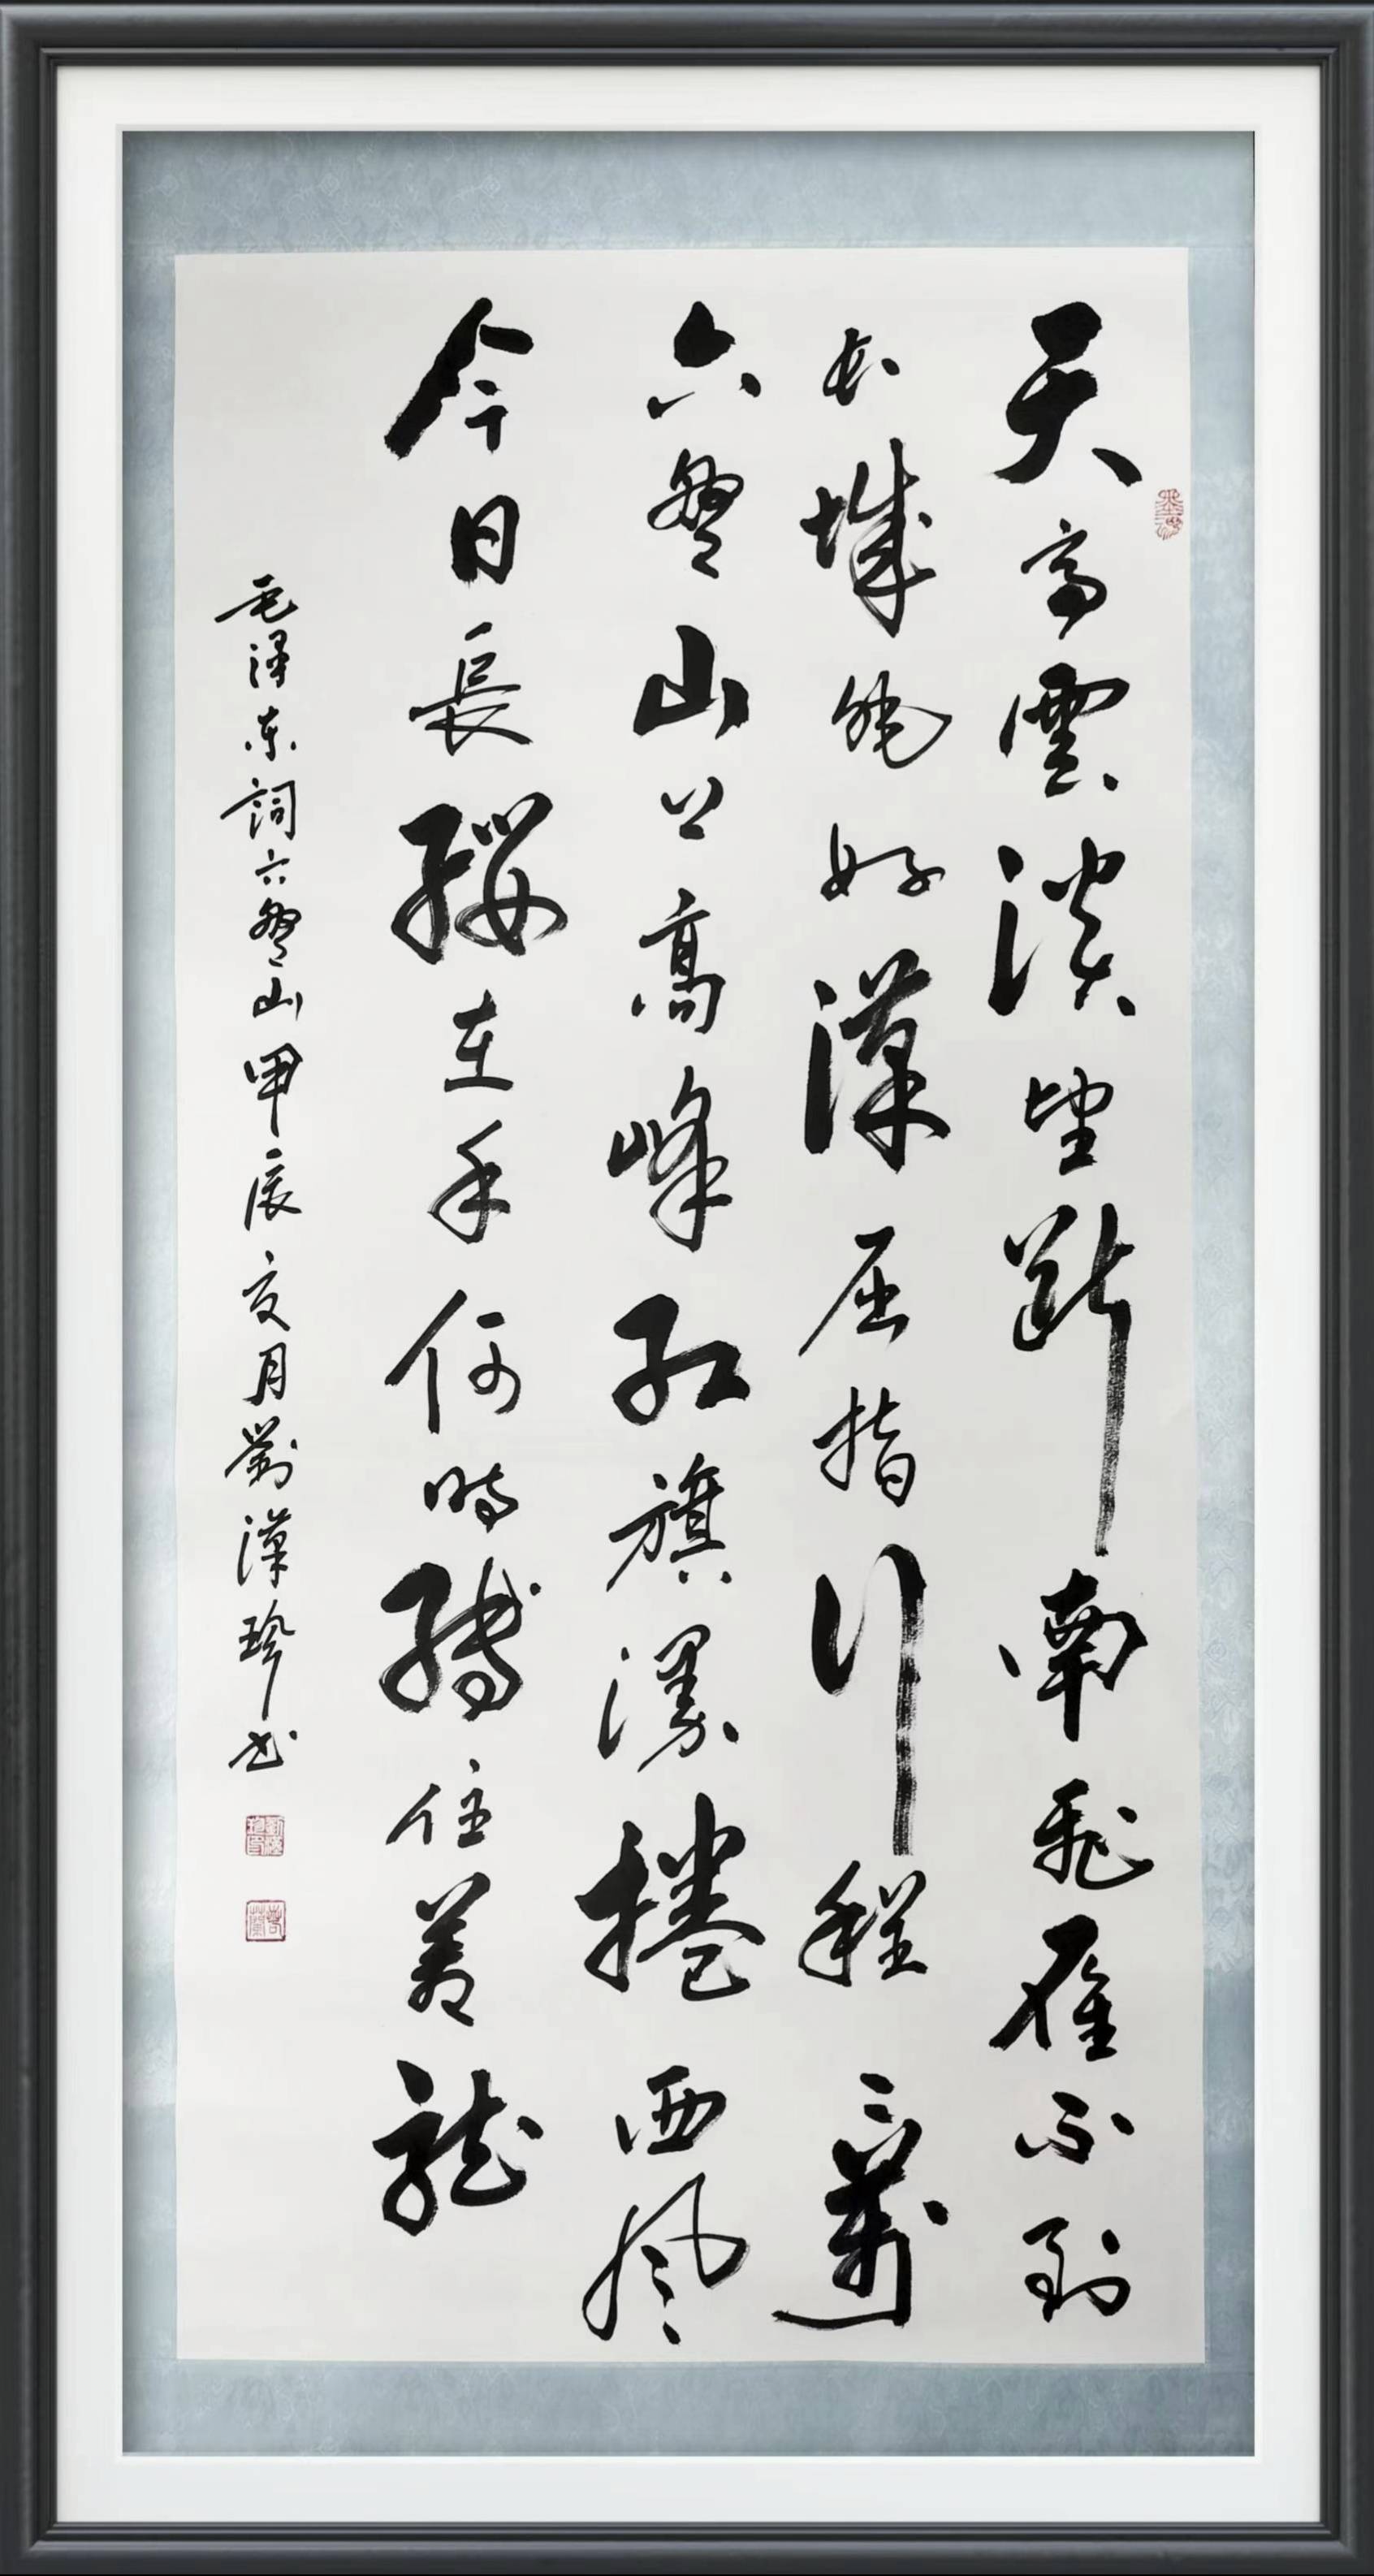 天高雲淡望斷南飛雁不到
长城非好漢屈指行程二萬
六盤山上高峰紅旗漫捲西風
今日長纓在手何時縛住蒼龍
毛澤東詞六盤山甲辰夏月劉漢珍书